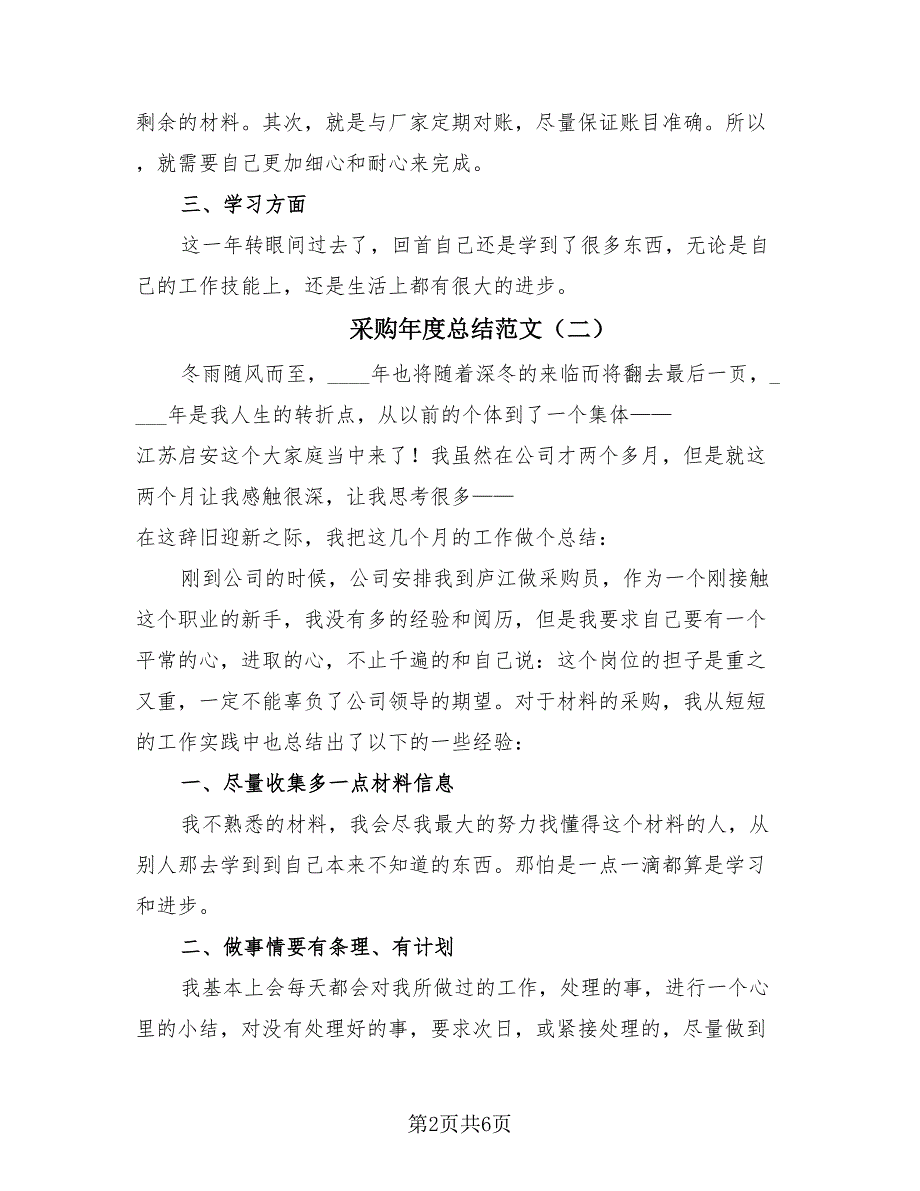 剩余的材料。其次，就是与厂家定期对账，尽量保证账目准确。所以
，就需要自己更加细心和耐心来完成。
三、学习方面
这一年转眼间过去了，回首自己还是学到了很多东西，无论是自
己的工作技能上，还是生活上都有很大的进步。
采购年度总结范文（二）
冬雨随风而至，____年也将随着深冬的来临而将翻去最后一页，_
___年是我人生的转折点，从以前的个体到了一个集体——
江苏启安这个大家庭当中来了！我虽然在公司才两个多月，但是就这
两个月让我感触很深，让我思考很多——
在这辞旧迎新之际，我把这几个月的工作做个总结：
刚到公司的时候，公司安排我到庐江做采购员，作为一个刚接触
这个职业的新手，我没有多的经验和阅历，但是我要求自己要有一个
平常的心，进取的心，不止千遍的和自己说：这个岗位的担子是重之
又重，一定不能辜负了公司领导的期望。对于材料的采购，我从短短
的工作实践中也总结出了以下的一些经验：
一、尽量收集多一点材料信息
我不熟悉的材料，我会尽我最大的努力找懂得这个材料的人，从
别人那去学到到自己本来不知道的东西。那怕是一点一滴都算是学习
和进步。
二、做事情要有条理、有计划
我基本上会每天都会对我所做过的工作，处理的事，进行一个心
里的小结，对没有处理好的事，要求次日，或紧接处理的，尽量做到
第2页共6页